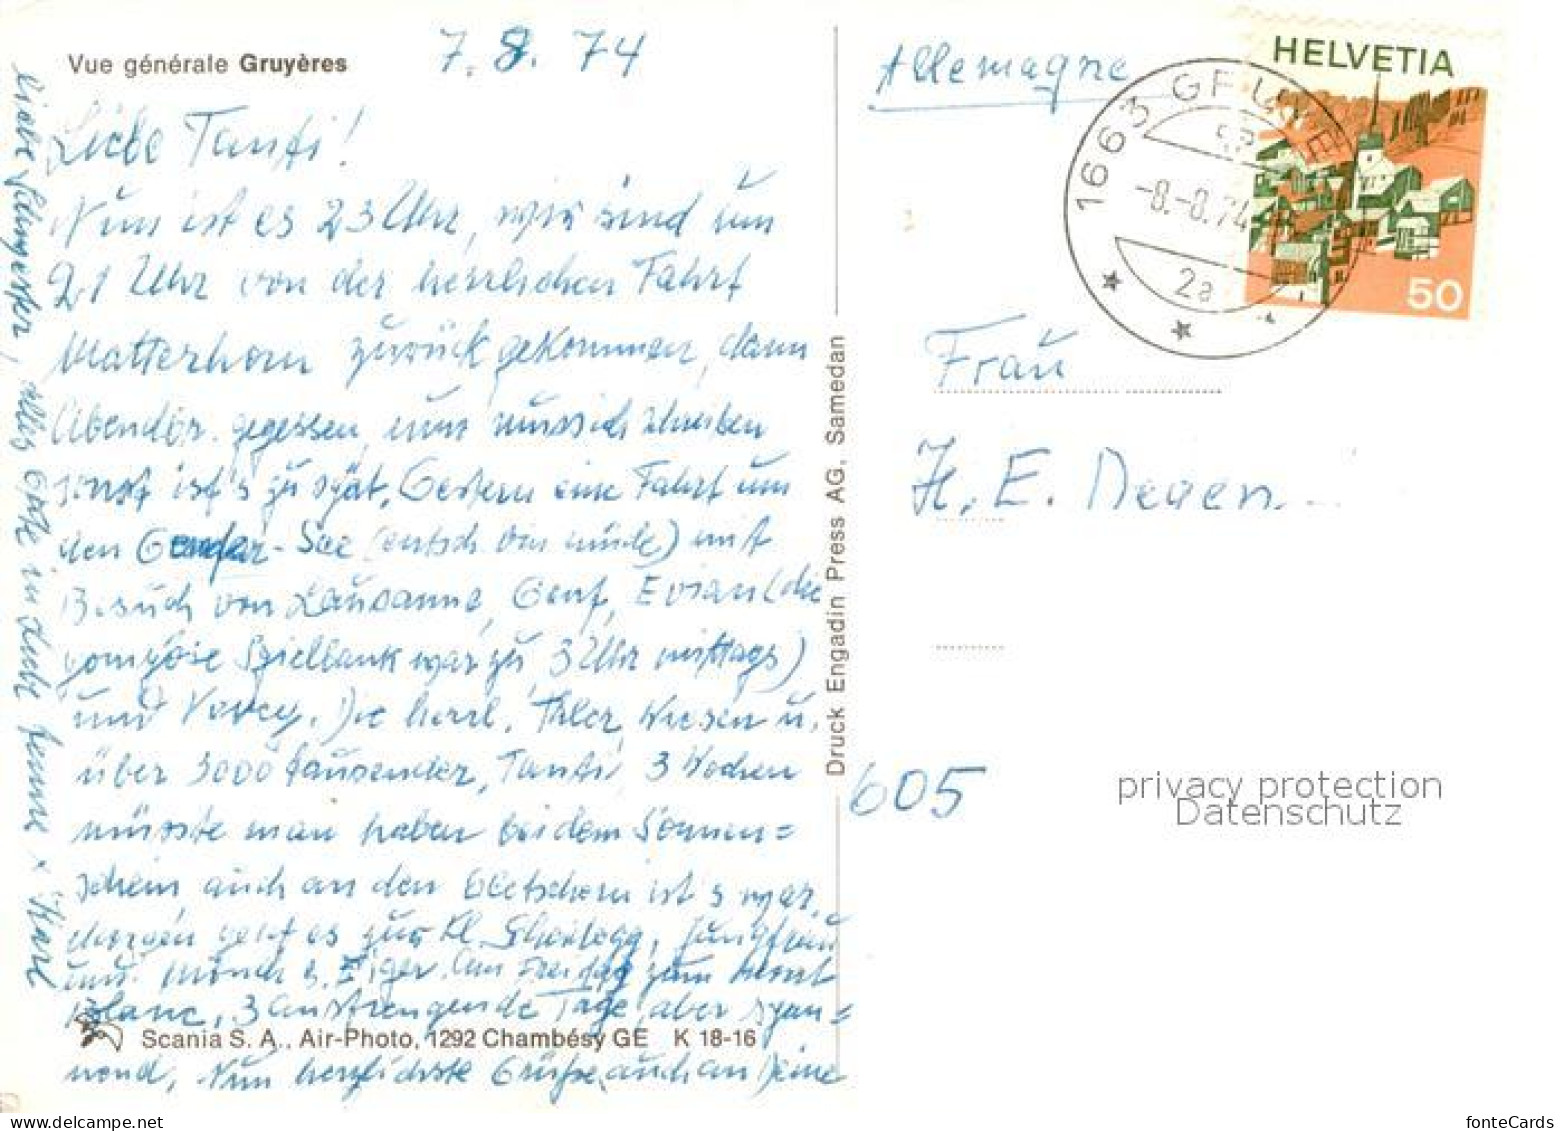 Vue générale Gruyères
7.8.74
Liebe Tanti!
Nun ist es 23 Uhr, wir sind um
21 Uhr von der herrlichen Fahrt
Matterhorn zurückgekommen, dann
Abendbr. gegessen, nun muss ich schreiben
sonst ist's zu spät. Gestern eine Fahrt um
den Genfer-See (entsch. bin müde) mit
Besuch von Lausanne, Genf, Evian (die
pompöse Spielbank war zu 3 Uhr mittags)
und Vevey. Die herrl. Täler, Wiesen u.
über 3000 Tausender, Tanti 3 Wochen
müsste man haben bei dem Sonnen=
schein, auch an den Gletschern ist's war.
Morgen geht es zur Kl. Scheidegg, Jungfrau
und Mönch u. Eiger. Am Freitag zum Mont
Blanc, 3 anstrengende Tage, aber span=
nend, Nun herzlichste Grüsse, auch an Deine
liebe Schwester, alles Gute in Liebe
Scania S. A., Air-Photo, 1292 Chambésy GE K 18-16
Druck Engadin Press AG, Samedan
Allemagne
HELVETIA
50
1663 GRUYE
-8.-8.74
2a
Frau
H. E. Degen
605
privacy protection
Datenschutz
fonteCards